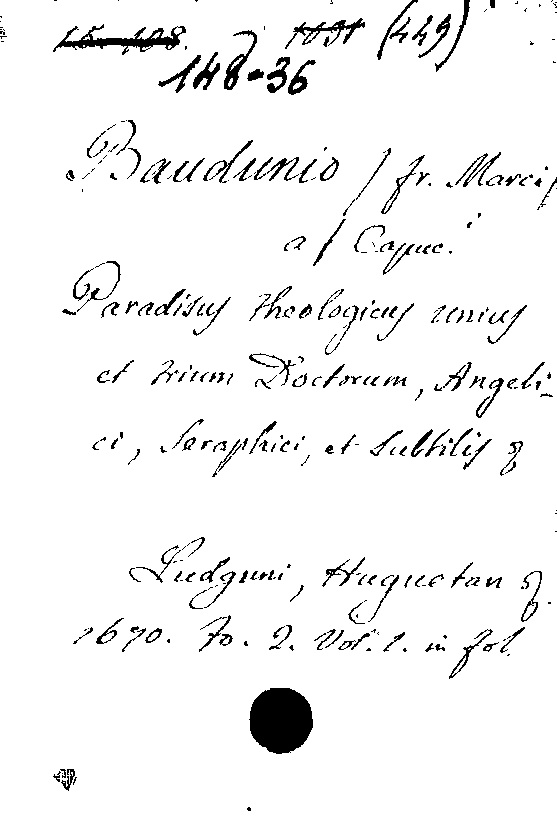 15-108. 1031 (449)
148-36
Baudunio / fr. Marci
a / Capuc.i
Paradisus theologicus unius
et trium Doctorum, Angeli-
ci, Seraphici, et Subtilis
Ludguni, Huguetan
1670. To. 2. Vol. 1. in fol.